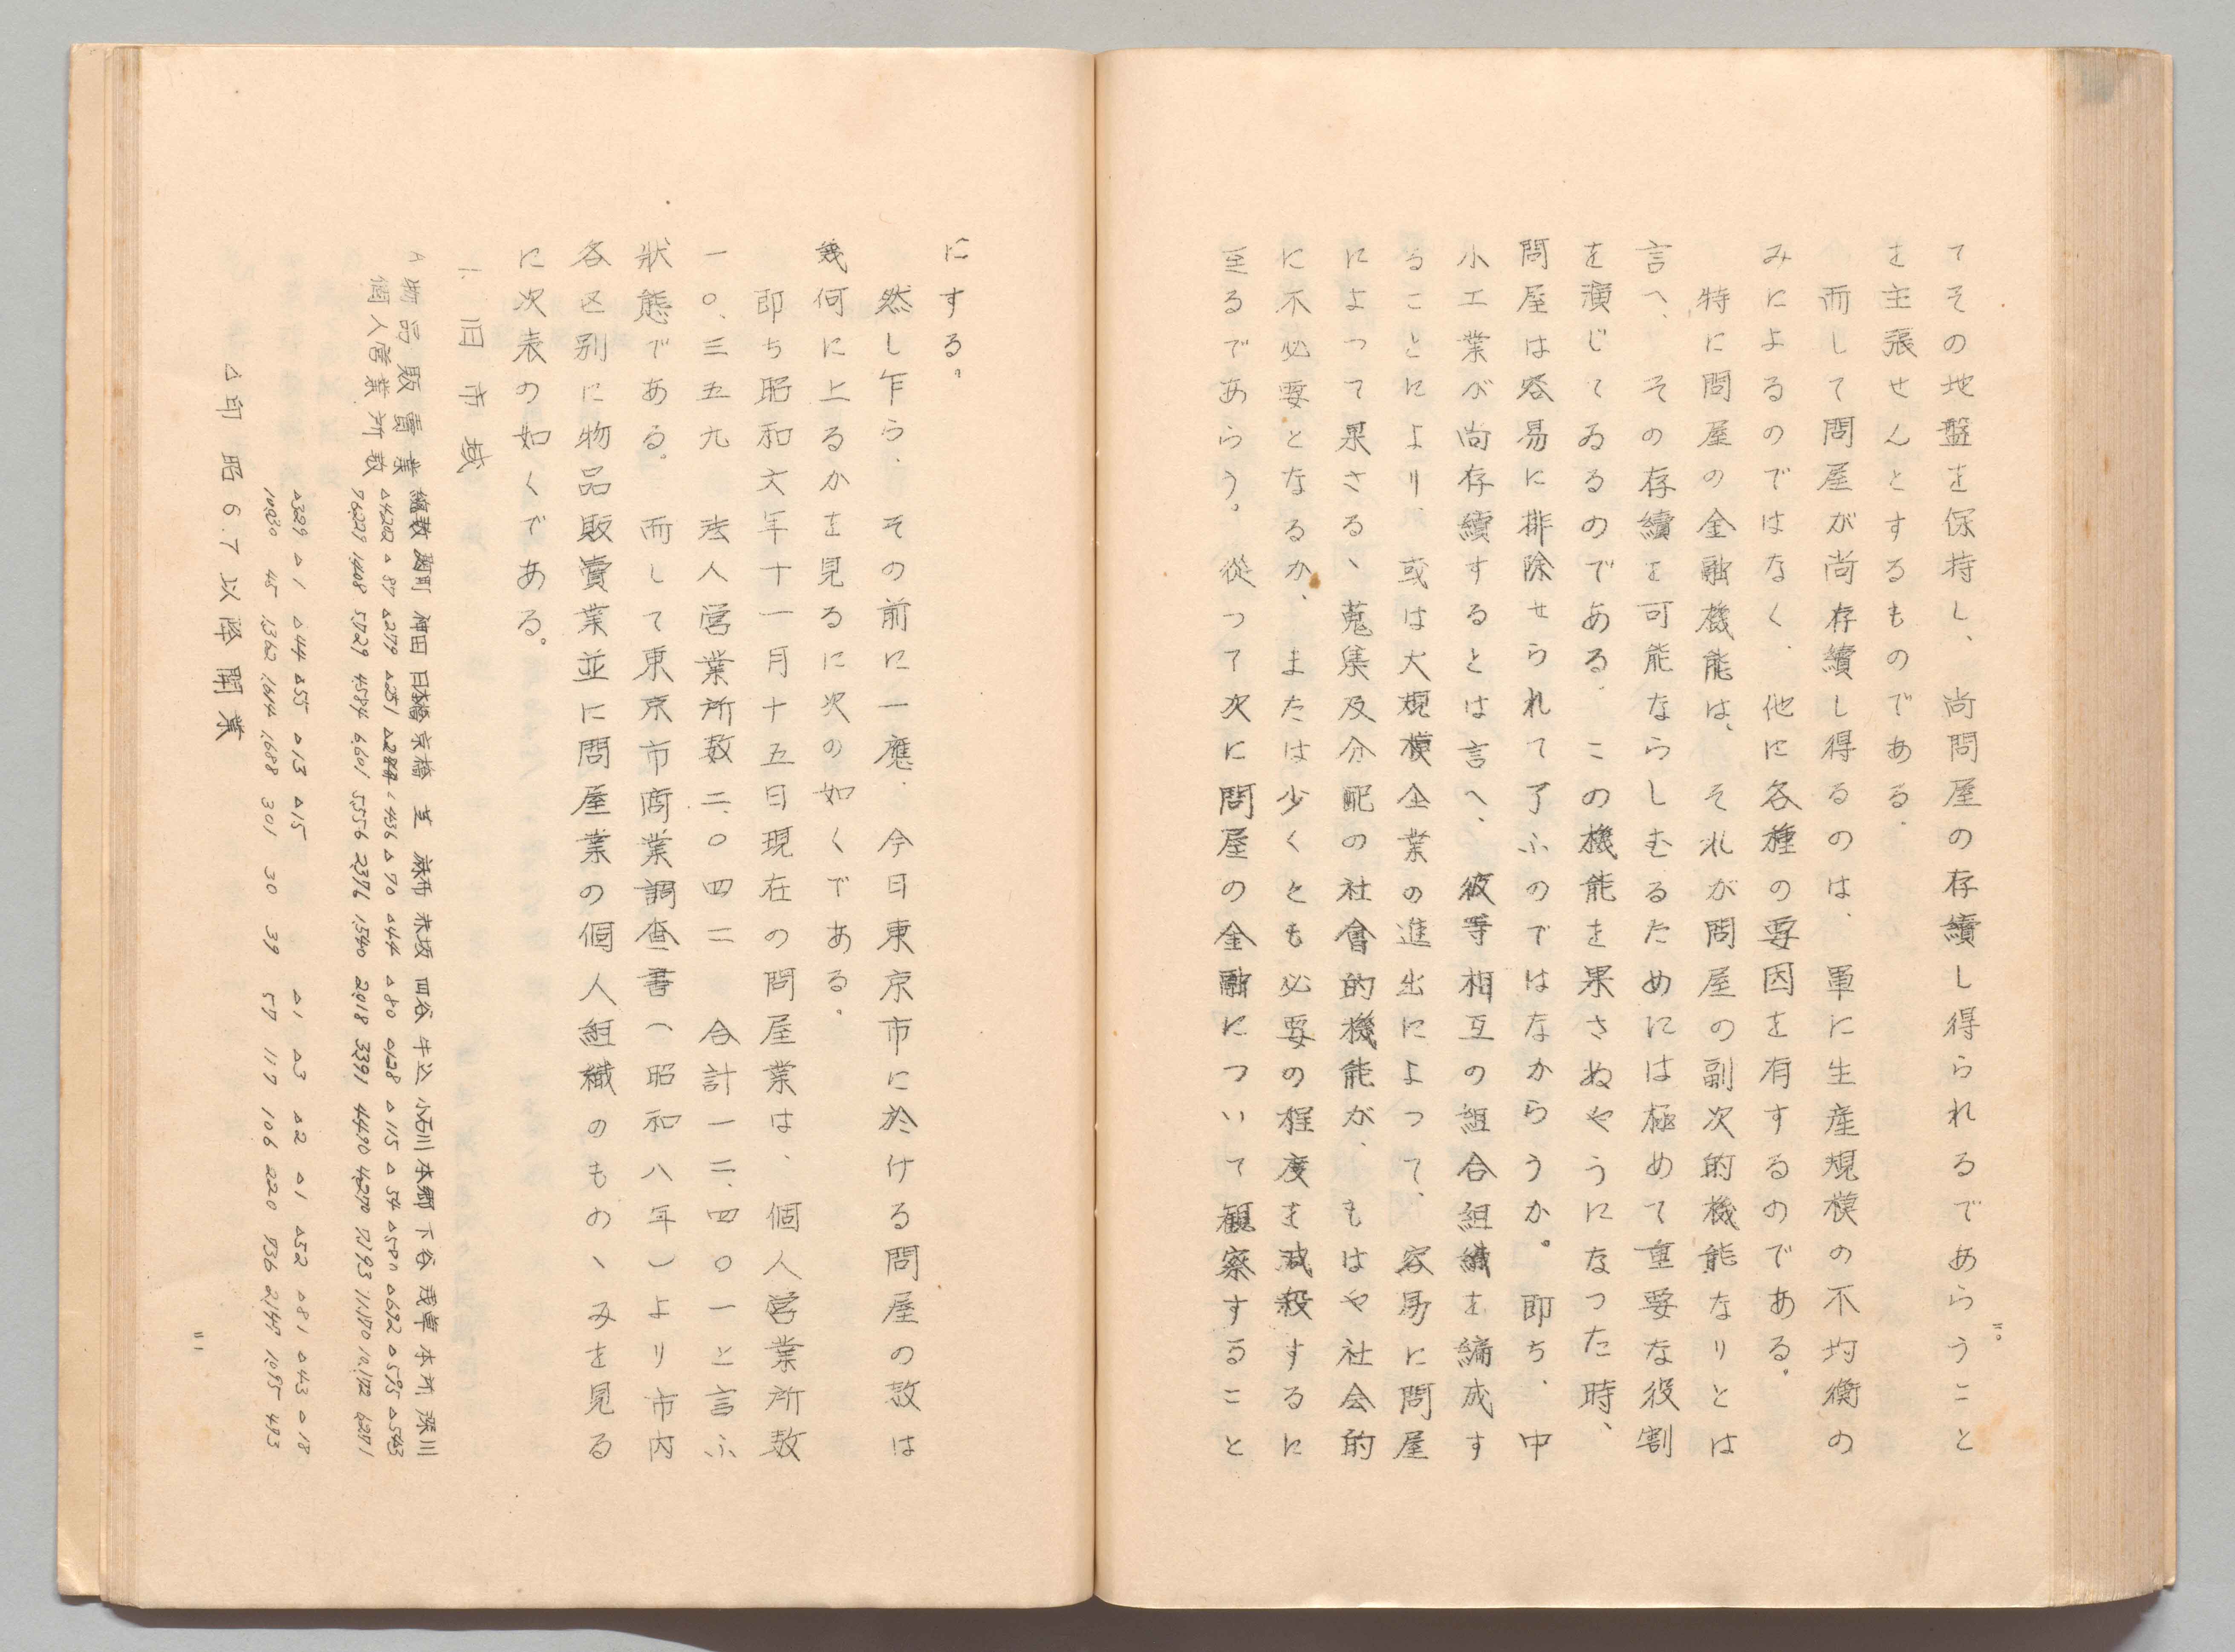 てその地盤を保持し、尚問屋の存續し得られるであらうこと
を主張せんとするものである.
而して問屋が尚存續し得るのは、単に生産規模の不均衡の
みによるのではなく、他に各種の要因を有するのである。
特に問屋の金融機能は、それが問屋の副次的機能なりとは
言へ、その存續を可能ならしむるためには極めて重要な役割
を演じてゐるのである. この機能を果さぬやうになった時、
問屋は容易に排除せられて了ふのではなからうか。即ち、中
小工業が尚存續するとは言へ、彼等相互の組合組織を編成す
ることにより、或は大規模企業の進出によって、容易に問屋
によって果さる、蒐集及分配の社會的機能が、もはや社会的
に不必要となるか、または少くとも必要の程度を減殺するに
至るであらう。從って次に問屋の金融について観察すること
二〇
にする。
然し乍ら、その前に一應、今日東京市に於ける問屋の数は
幾何に上るかを見るに次の如くである。
即ち昭和六年十一月十五日現在の問屋業は、個人営業所数
一〇、三五九 法人営業所数二、〇四二 合計一二、四〇一と言ふ
状態である。而して東京市商業調査書(昭和八年)より市内
各区別に物品販賣業並に問屋業の個人組織のものヽみを見る
に次表の如くである。
1. 旧市域
A 物品販賣業
個人営業所数
總数 麹町 神田 日本橋 京橋 芝 麻布 赤坂 四谷 牛込 小石川 本郷 下谷 浅草 本所 深川
76,229 1,408 5,729 4,584 6,601 5,556 2,376 1,540 2,018 3,391 4,490 4,270 7,193 11,170 10,172 6,271
△329 △1 △44 △55 △13 △15 △1 △3 △2 △1 △52 △81 △43 △18
10,230 45 1,362 1,614 1,688 301 30 39 57 117 106 220 936 2,147 1,095 493
△印 昭6.7以降開業
二一